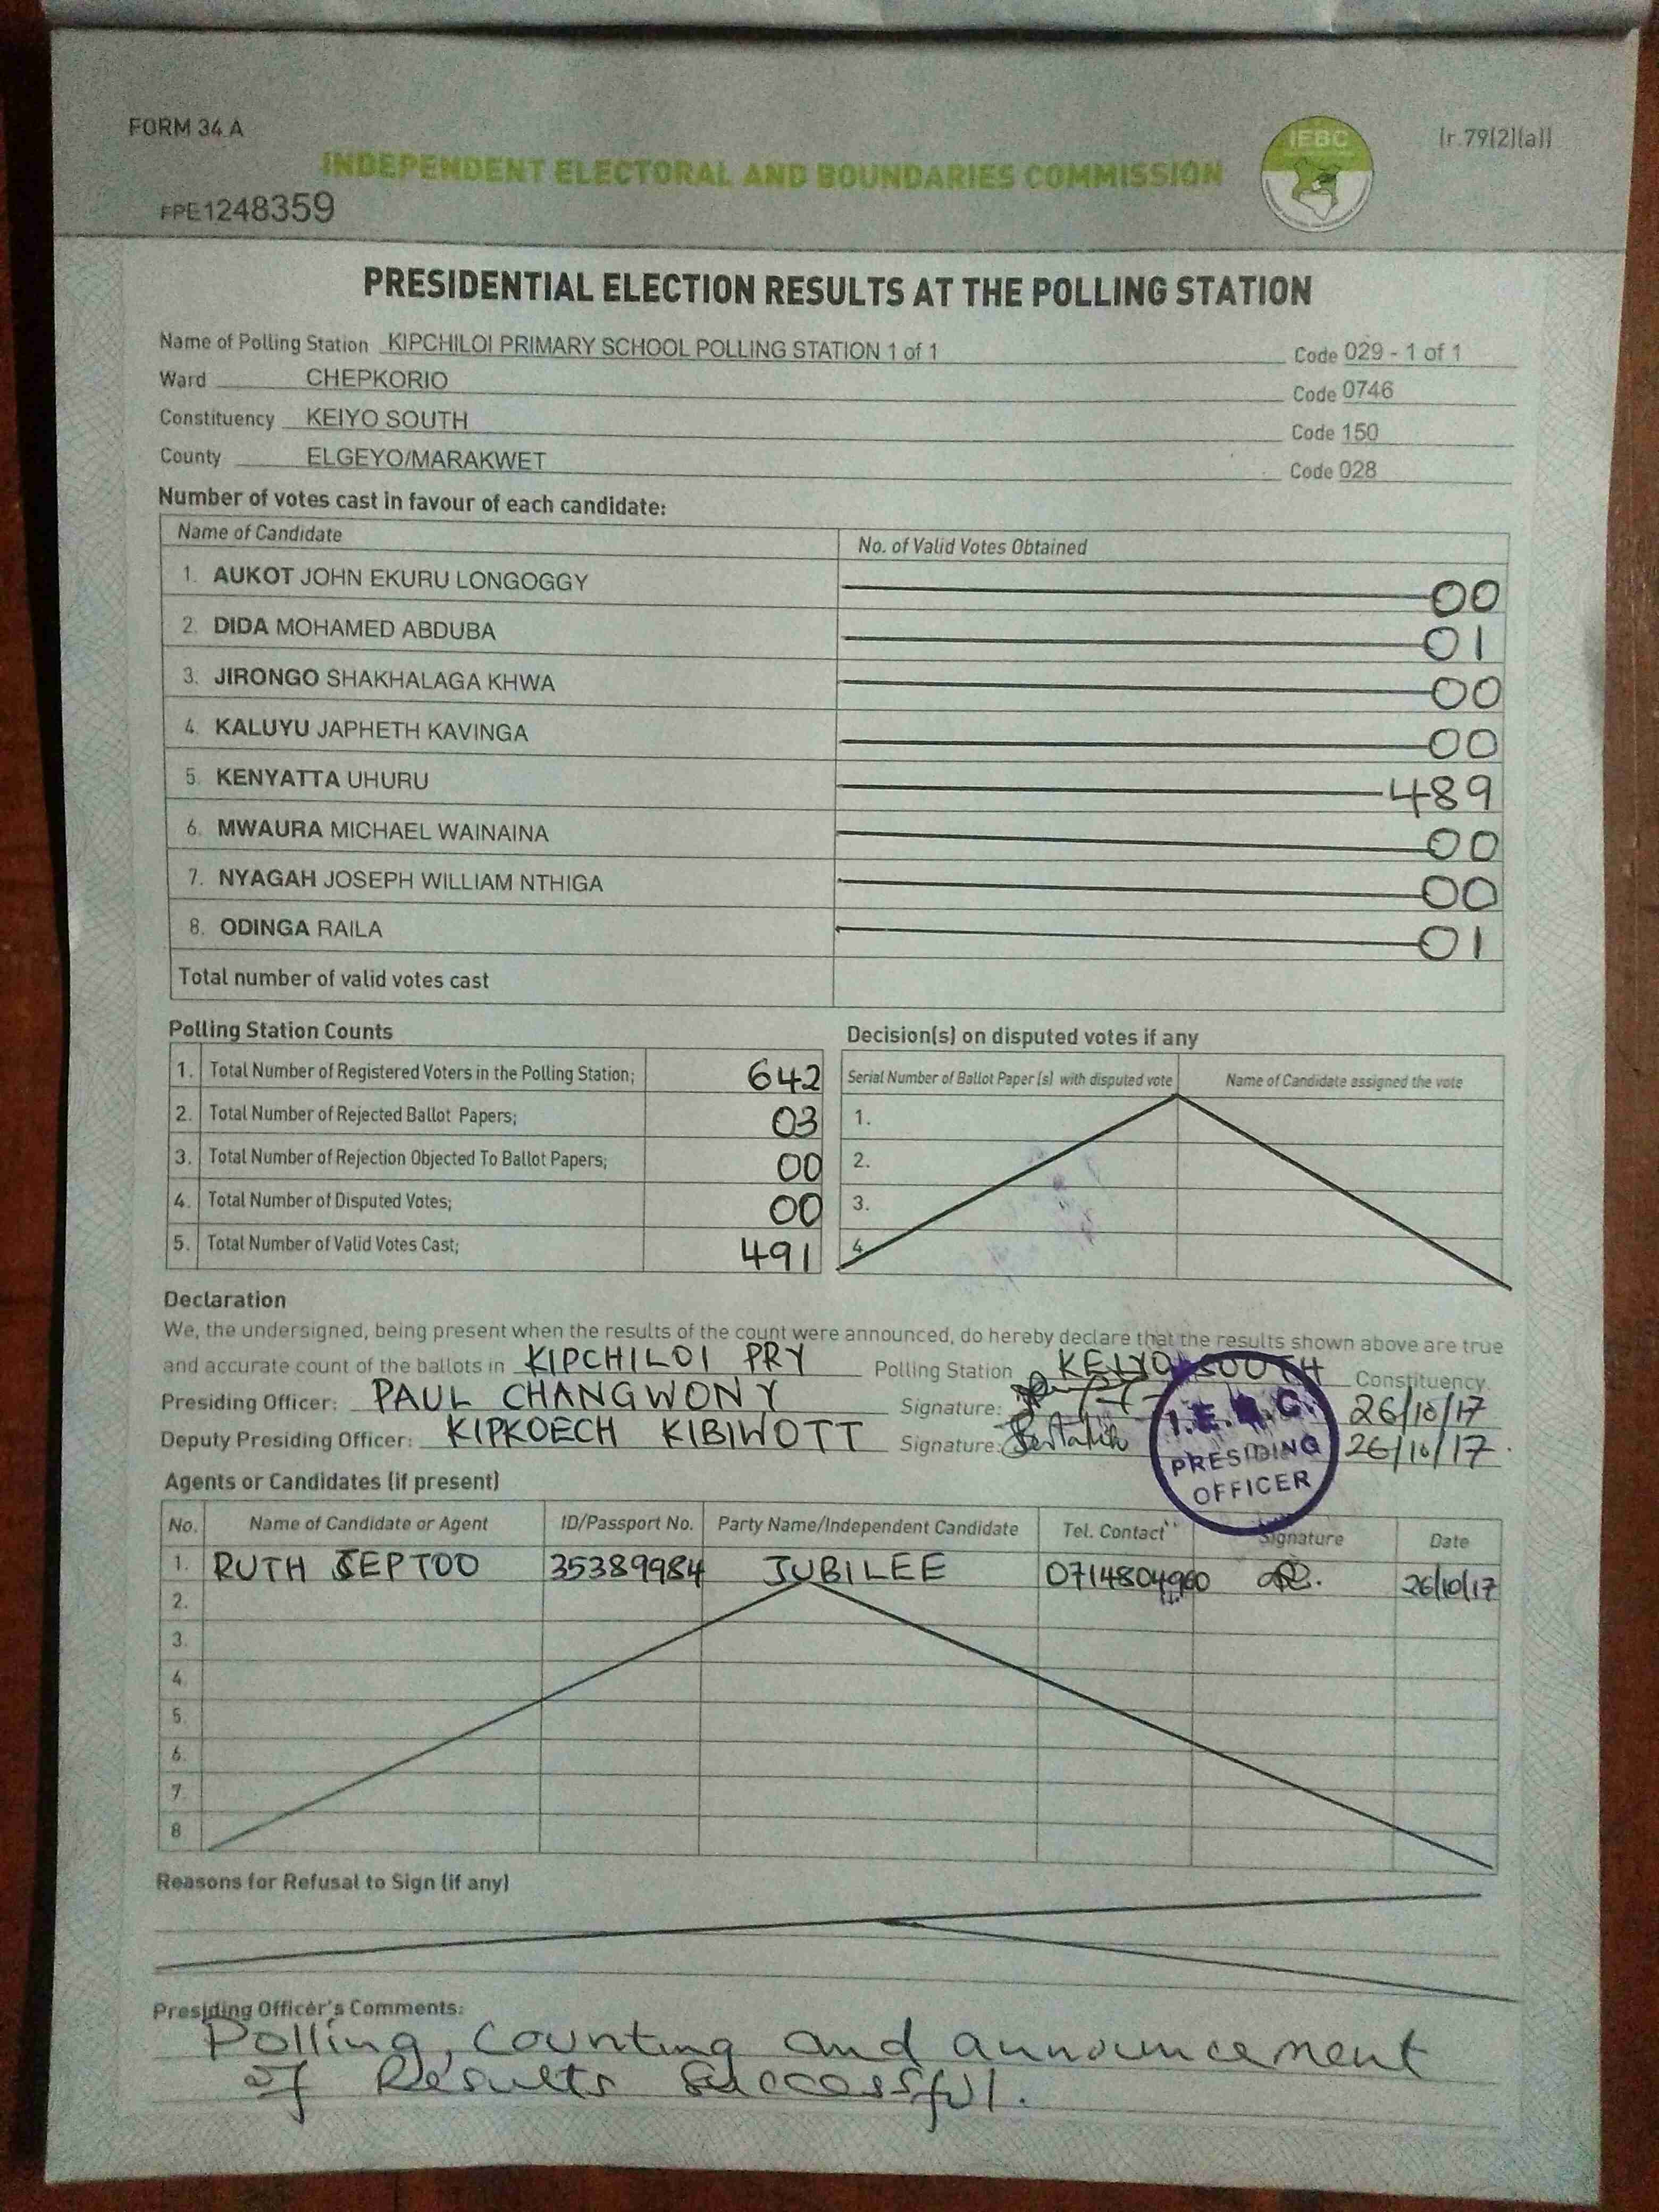 FORM 34 A
IEBC
[r.79(2)(a)]
INDEPENDENT ELECTORAL AND BOUNDARIES COMMISSION
FPE1248359
PRESIDENTIAL ELECTION RESULTS AT THE POLLING STATION
Name of Polling Station KIPCHILOI PRIMARY SCHOOL POLLING STATION 1 of 1 Code 029 - 1 of 1
Ward CHEPKORIO Code 0746
Constituency KEIYO SOUTH Code 150
County ELGEYO/MARAKWET Code 028
Number of votes cast in favour of each candidate:
Name of Candidate No. of Valid Votes Obtained
1. AUKOT JOHN EKURU LONGOGGY 00
2. DIDA MOHAMED ABDUBA 01
3. JIRONGO SHAKHALAGA KHWA 00
4. KALUYU JAPHETH KAVINGA 00
5. KENYATTA UHURU 489
6. MWAURA MICHAEL WAINAINA 00
7. NYAGAH JOSEPH WILLIAM NTHIGA 00
8. ODINGA RAILA 01
Total number of valid votes cast
Polling Station Counts
1. Total Number of Registered Voters in the Polling Station; 642
2. Total Number of Rejected Ballot Papers; 03
3. Total Number of Rejection Objected To Ballot Papers; 00
4. Total Number of Disputed Votes; 00
5. Total Number of Valid Votes Cast; 491
Decision(s) on disputed votes if any
Serial Number of Ballot Paper (s) with disputed vote Name of Candidate assigned the vote
1.
2.
3.
4.
Declaration
We, the undersigned, being present when the results of the count were announced, do hereby declare that the results shown above are true
and accurate count of the ballots in KIPCHILOI PRY Polling Station KEIYO SOUTH Constituency.
Presiding Officer: PAUL CHANGWONY Signature: 26/10/17
Deputy Presiding Officer: KIPKOECH KIBIWOTT Signature: 26/10/17.
I.E.B.C.
PRESIDING
OFFICER
Agents or Candidates (if present)
No. Name of Candidate or Agent ID/Passport No. Party Name/Independent Candidate Tel. Contact Signature Date
1. RUTH SEPTOO 35389984 JUBILEE 0714804960 26/10/17
2.
3.
4.
5.
6.
7.
8
Reasons for Refusal to Sign (if any)
Presiding Officer's Comments:
Polling, counting and announcement
of Results Successful.